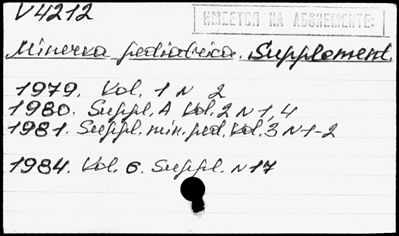 V4212
ИМЕЕТСЯ НА АБОНЕМЕНТЕ:
Minerva pediatrica. Supplement.
1979. Vol. 1 N 2
1980. Suppl. A Vol. 2 N 1, 4
1981. Suppl. min. ped. Vol. 3 N 1-2
1984. Vol. 6. Suppl. N 17